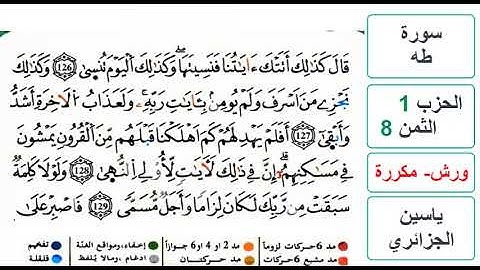 قَالَ كَذَٰلِكَ أَتَتْكَ ءَايَٰتُنَا فَنَسِيتَهَا وَكَذَٰلِكَ اَلْيَوْمَ تُنسَىٰ 126 وَكَذَٰلِكَ
نَجْزِے مَنَ اَسْرَفَ وَلَمْ يُومِنۢ بِـَٔايَٰتِ رَبِّهِۦ وَلَعَذَابُ اُ۬لَاخِرَةِ أَشَدُّ
وَأَبْقَىٰ 127 أَفَلَمْ يَهْدِ لَهُمْ كَمَ اَهْلَكْنَا قَبْلَهُم مِّنَ اَلْقُرُونِ يَمْشُونَ
فِے مَسَٰكِنِهِمُۥ إِنَّ فِے ذَٰلِكَ لَأٓيَٰتٖ لِّأُوْلِے اِ۬لنُّهَىٰ 128 وَلَوْلَا كَلِمَةٞ
سَبَقَتْ مِن رَّبِّكَ لَكَانَ لِزَاماٗ وَأَجَلٞ مُّسَمّىٗ 129 فَاصْبِرْ عَلَىٰ
مد 6 حركات لزوماً مد 2 أو 4 أو 6 جوازاً إخفاء، ومواقع الغنة تفخيم
مد مشبع 6 حركات مد حركتان إدغام، وما لا يُلفظ قلقلة
سورة
طه
الحزب 1
الثمن 8
ورش- مكررة
ياسين
الجزائري